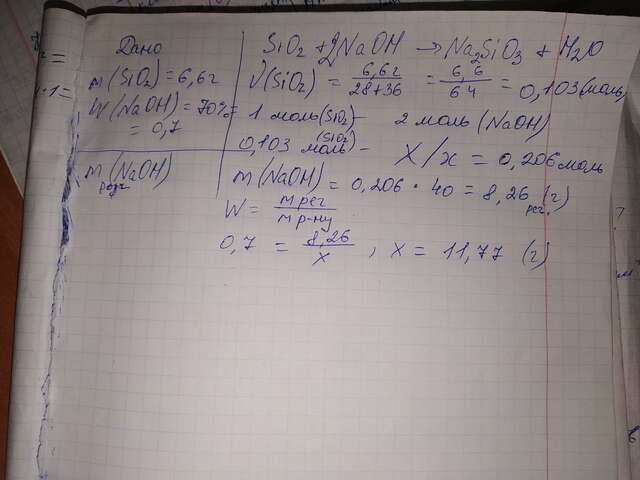 Дано
m(SiO₂)=6,6г
W(NaOH)=70%=
= 0,7
m(NaOH)
SiO₂ + 2NaOH → Na₂SiO₃ + H₂O
ν(SiO₂) = 6,6г/28+36 = 6,6/64 = 0,103(моль)
1 моль(SiO₂) – 2 моль (NaOH)
0,103 моль(SiO₂) – X/x = 0,206 моль
m(NaOH) = 0,206 · 40 = 8,26 (г)
W = m рег/m р-ну
0,7 = 8,26/x , x = 11,77 (г)